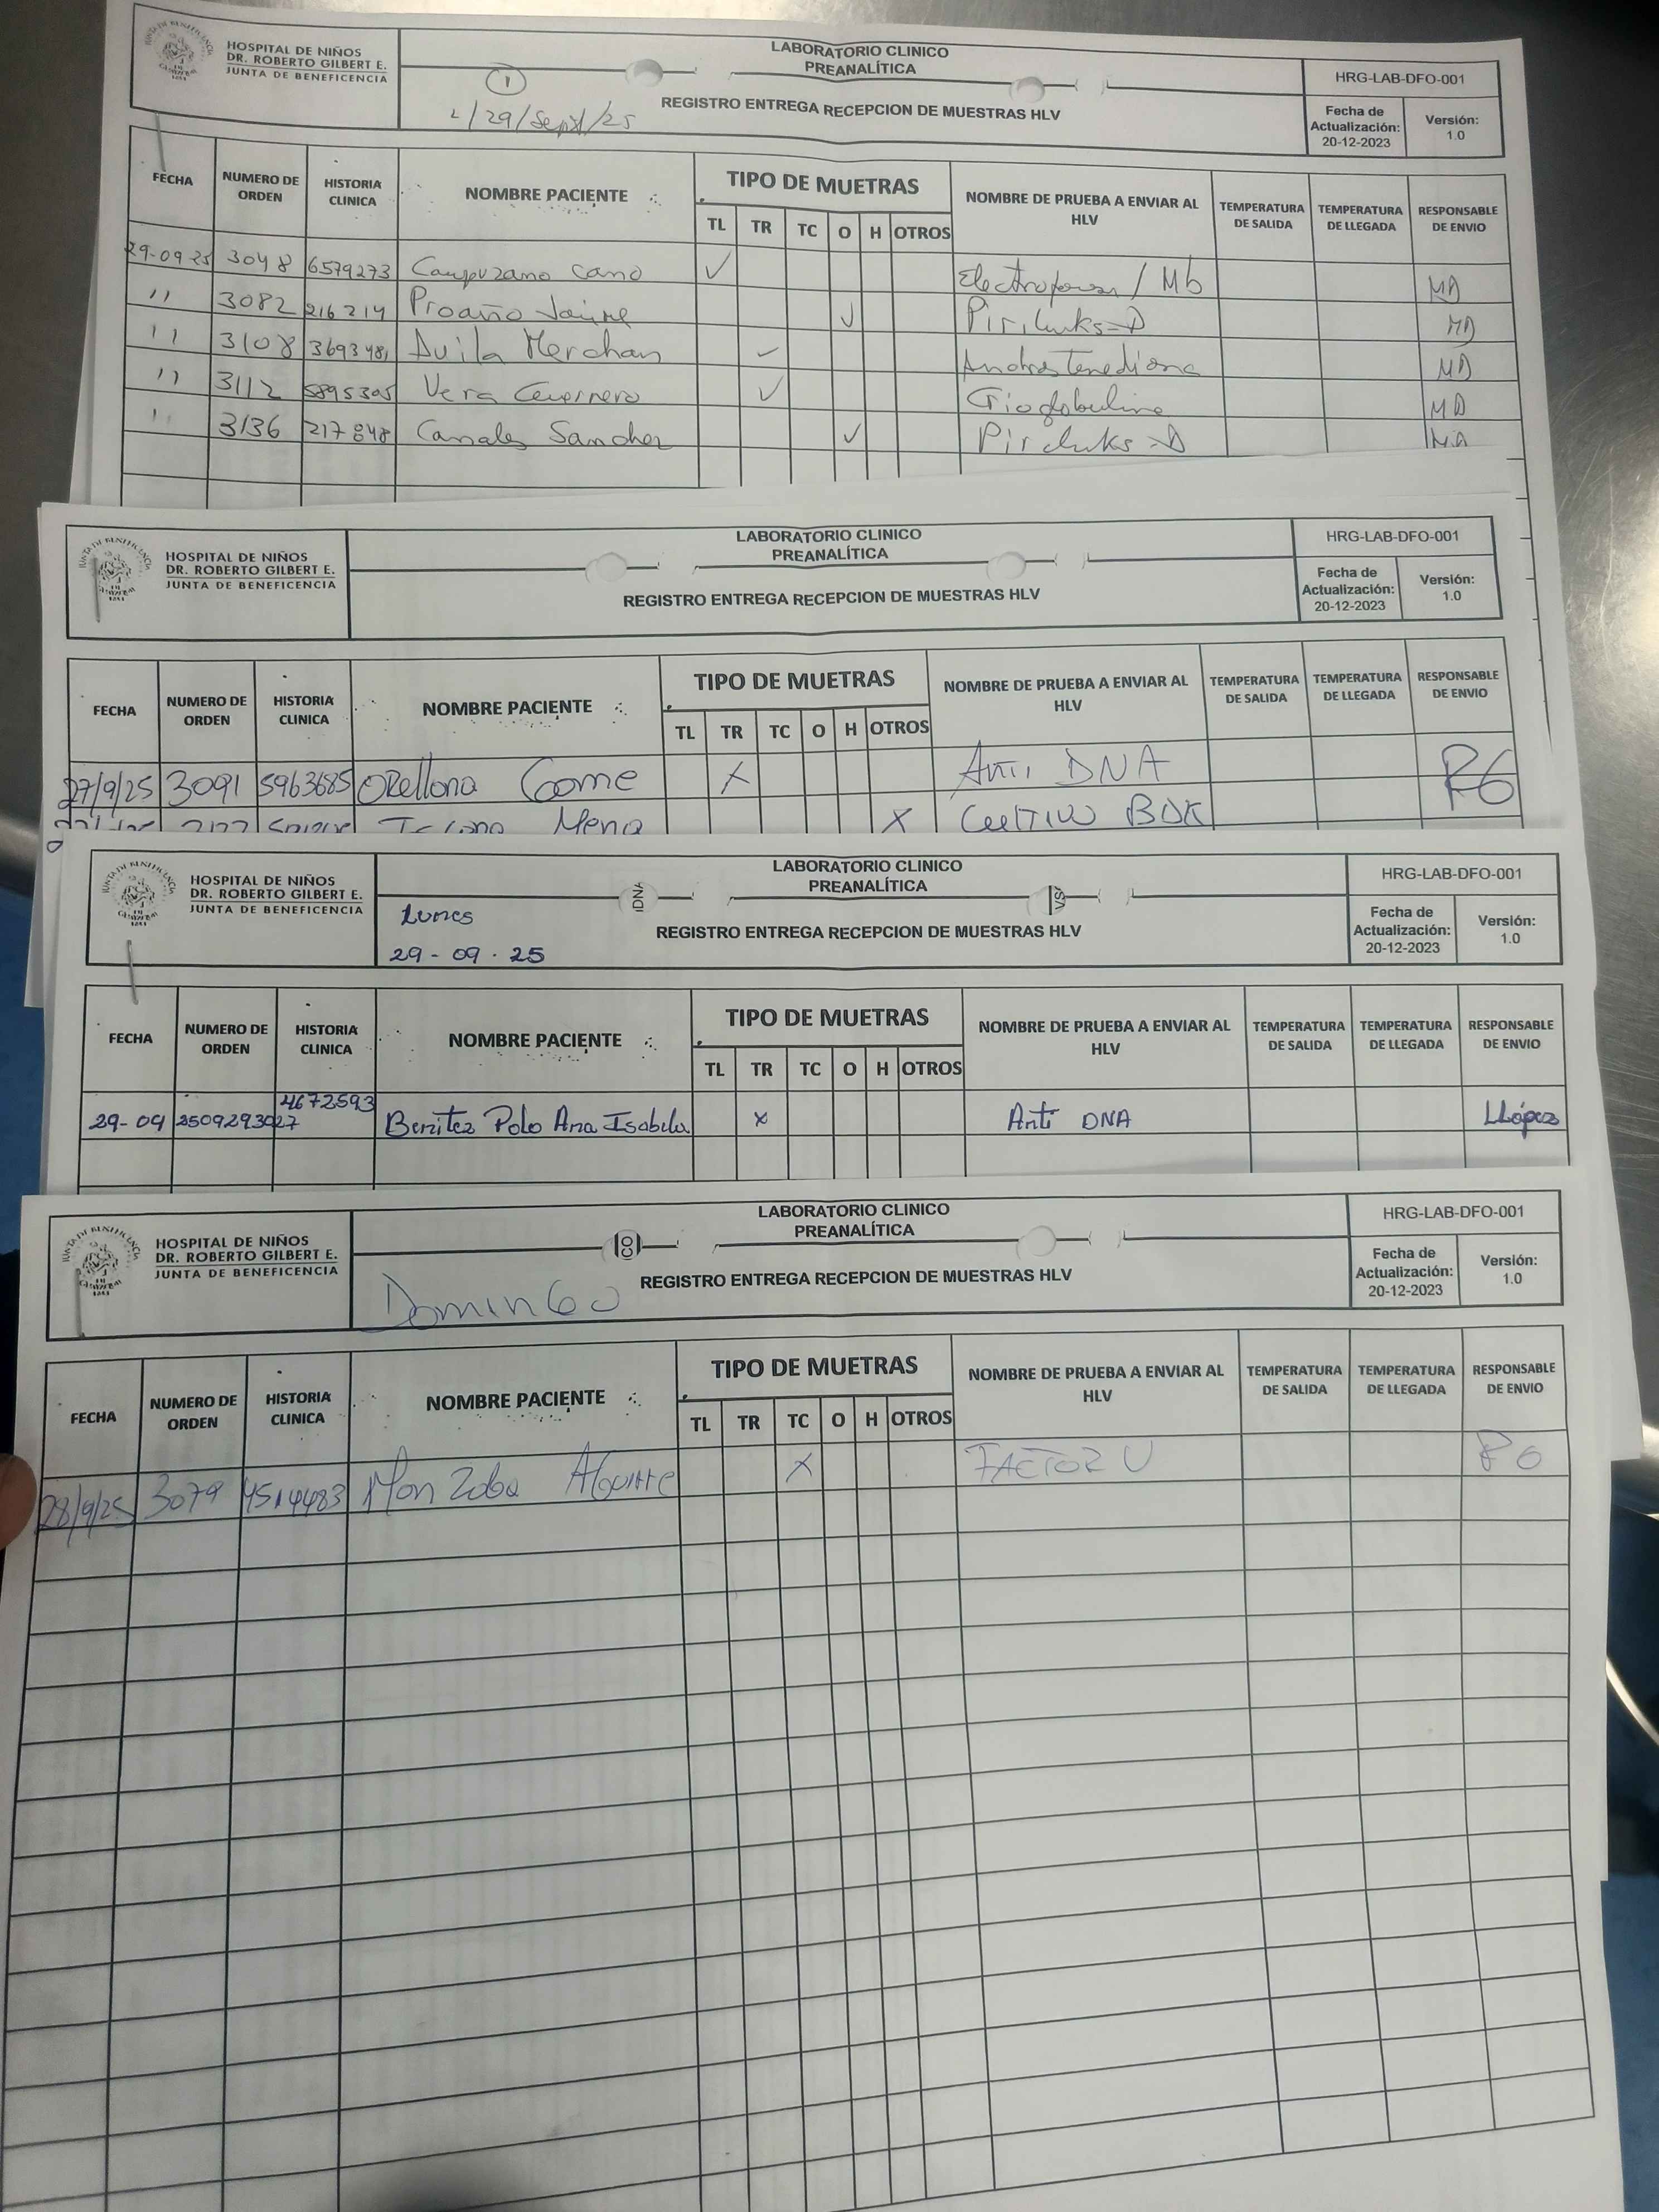 HOSPITAL DE NIÑOS
DR. ROBERTO GILBERT E.
JUNTA DE BENEFICENCIA
LABORATORIO CLINICO
PREANALÍTICA
REGISTRO ENTREGA RECEPCION DE MUESTRAS HLV
1
L/29/Sept/25
HRG-LAB-DFO-001
Fecha de Actualización: 20-12-2023
Versión: 1.0
FECHA NUMERO DE ORDEN HISTORIA CLINICA NOMBRE PACIENTE TIPO DE MUETRAS NOMBRE DE PRUEBA A ENVIAR AL HLV TEMPERATURA DE SALIDA TEMPERATURA DE LLEGADA RESPONSABLE DE ENVIO
TL TR TC O H OTROS
29-09-25 3048 6579273 Campuzano Cano ✓ / Mb MD
'' 3082 216214 Proaño ✓ MD
'' 3108 369348 Avila Merchan ✓ Androstenediona MD
'' 3112 5895305 Vera Guerrero ✓ MD
'' 3136 217848 Canales Sanchez ✓ MD
HOSPITAL DE NIÑOS
DR. ROBERTO GILBERT E.
JUNTA DE BENEFICENCIA
LABORATORIO CLINICO
PREANALÍTICA
REGISTRO ENTREGA RECEPCION DE MUESTRAS HLV
HRG-LAB-DFO-001
Fecha de Actualización: 20-12-2023
Versión: 1.0
FECHA NUMERO DE ORDEN HISTORIA CLINICA NOMBRE PACIENTE TIPO DE MUETRAS NOMBRE DE PRUEBA A ENVIAR AL HLV TEMPERATURA DE SALIDA TEMPERATURA DE LLEGADA RESPONSABLE DE ENVIO
TL TR TC O H OTROS
27/9/25 3091 5963685 Orellana X Anti DNA RG
Mena X Cultivo BDK
HOSPITAL DE NIÑOS
DR. ROBERTO GILBERT E.
JUNTA DE BENEFICENCIA
LABORATORIO CLINICO
PREANALÍTICA
REGISTRO ENTREGA RECEPCION DE MUESTRAS HLV
Lunes
29-09-25
HRG-LAB-DFO-001
Fecha de Actualización: 20-12-2023
Versión: 1.0
FECHA NUMERO DE ORDEN HISTORIA CLINICA NOMBRE PACIENTE TIPO DE MUETRAS NOMBRE DE PRUEBA A ENVIAR AL HLV TEMPERATURA DE SALIDA TEMPERATURA DE LLEGADA RESPONSABLE DE ENVIO
TL TR TC O H OTROS
29-09 2509293027 4672593 Benitez Polo Ana Isabela x Anti DNA LLópez
HOSPITAL DE NIÑOS
DR. ROBERTO GILBERT E.
JUNTA DE BENEFICENCIA
LABORATORIO CLINICO
PREANALÍTICA
REGISTRO ENTREGA RECEPCION DE MUESTRAS HLV
Domingo
HRG-LAB-DFO-001
Fecha de Actualización: 20-12-2023
Versión: 1.0
FECHA NUMERO DE ORDEN HISTORIA CLINICA NOMBRE PACIENTE TIPO DE MUETRAS NOMBRE DE PRUEBA A ENVIAR AL HLV TEMPERATURA DE SALIDA TEMPERATURA DE LLEGADA RESPONSABLE DE ENVIO
TL TR TC O H OTROS
28/9/25 3079 4514483 Aguirre X FACTOR V